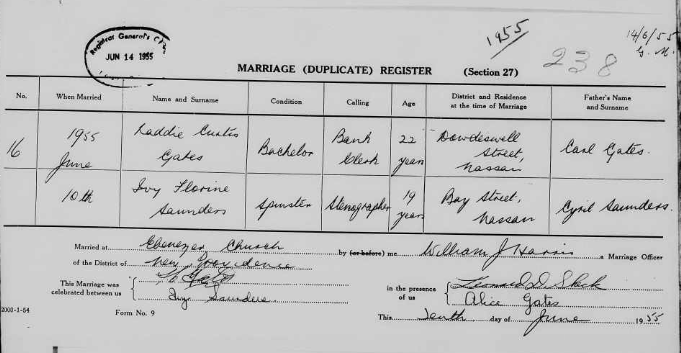 Registrar General's
JUN 14 1955
1955
14/6/55
G. M.
238
MARRIAGE (DUPLICATE) REGISTER (Section 27)
No. When Married Name and Surname Condition Calling Age District and Residence at the time of Marriage Father's Name and Surname
16 1955 June 10th
Laddie Curtis Gates Bachelor Bank Clerk 22 years Dowdeswell Street, Nassau Carl Gates.
Ivy Florine Saunders Spinster Stenographer 19 years Bay Street, Nassau Cyril Saunders.
Married at Ebenezer Church by (or before) me William J Harris a Marriage Officer
of the District of New Providence
This Marriage was celebrated between us Gates in the presence of us Leonard D
Ivy Saunders Alice Gates
2000-1-64 Form No. 9 This Tenth day of June 1955